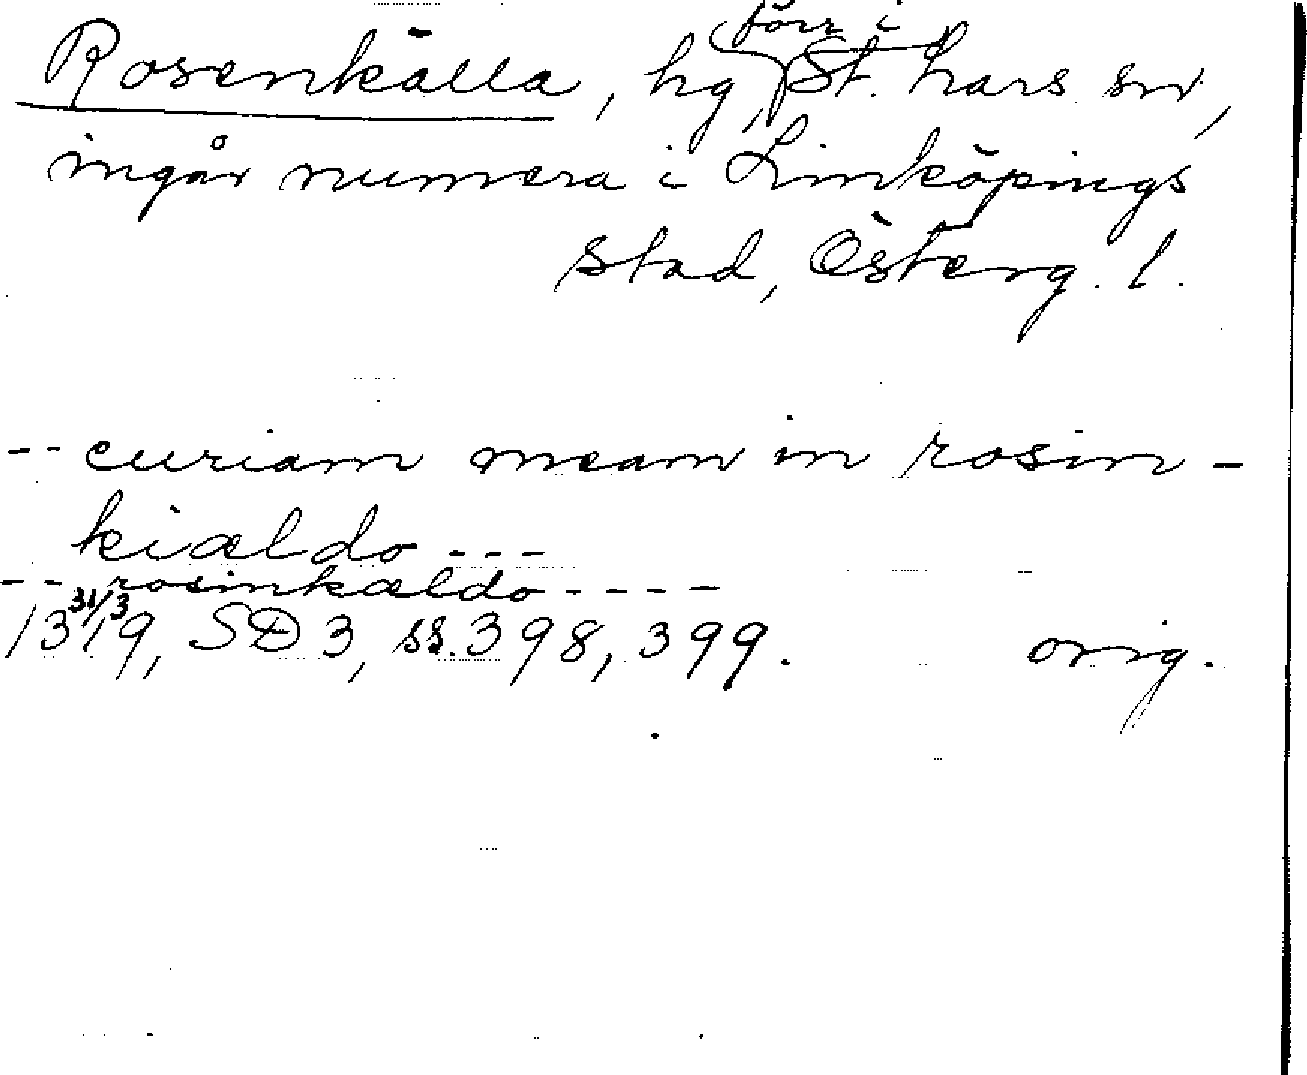 Rosenkälla, hg, förr i St. Lars sn,
ingår numera i Linköpings
stad, Österg. l.
-- curiam meam in rosin-
kiældo ---
-- rosinkældo ----
13 31/3 19, SD 3, ss. 398, 399. orig.